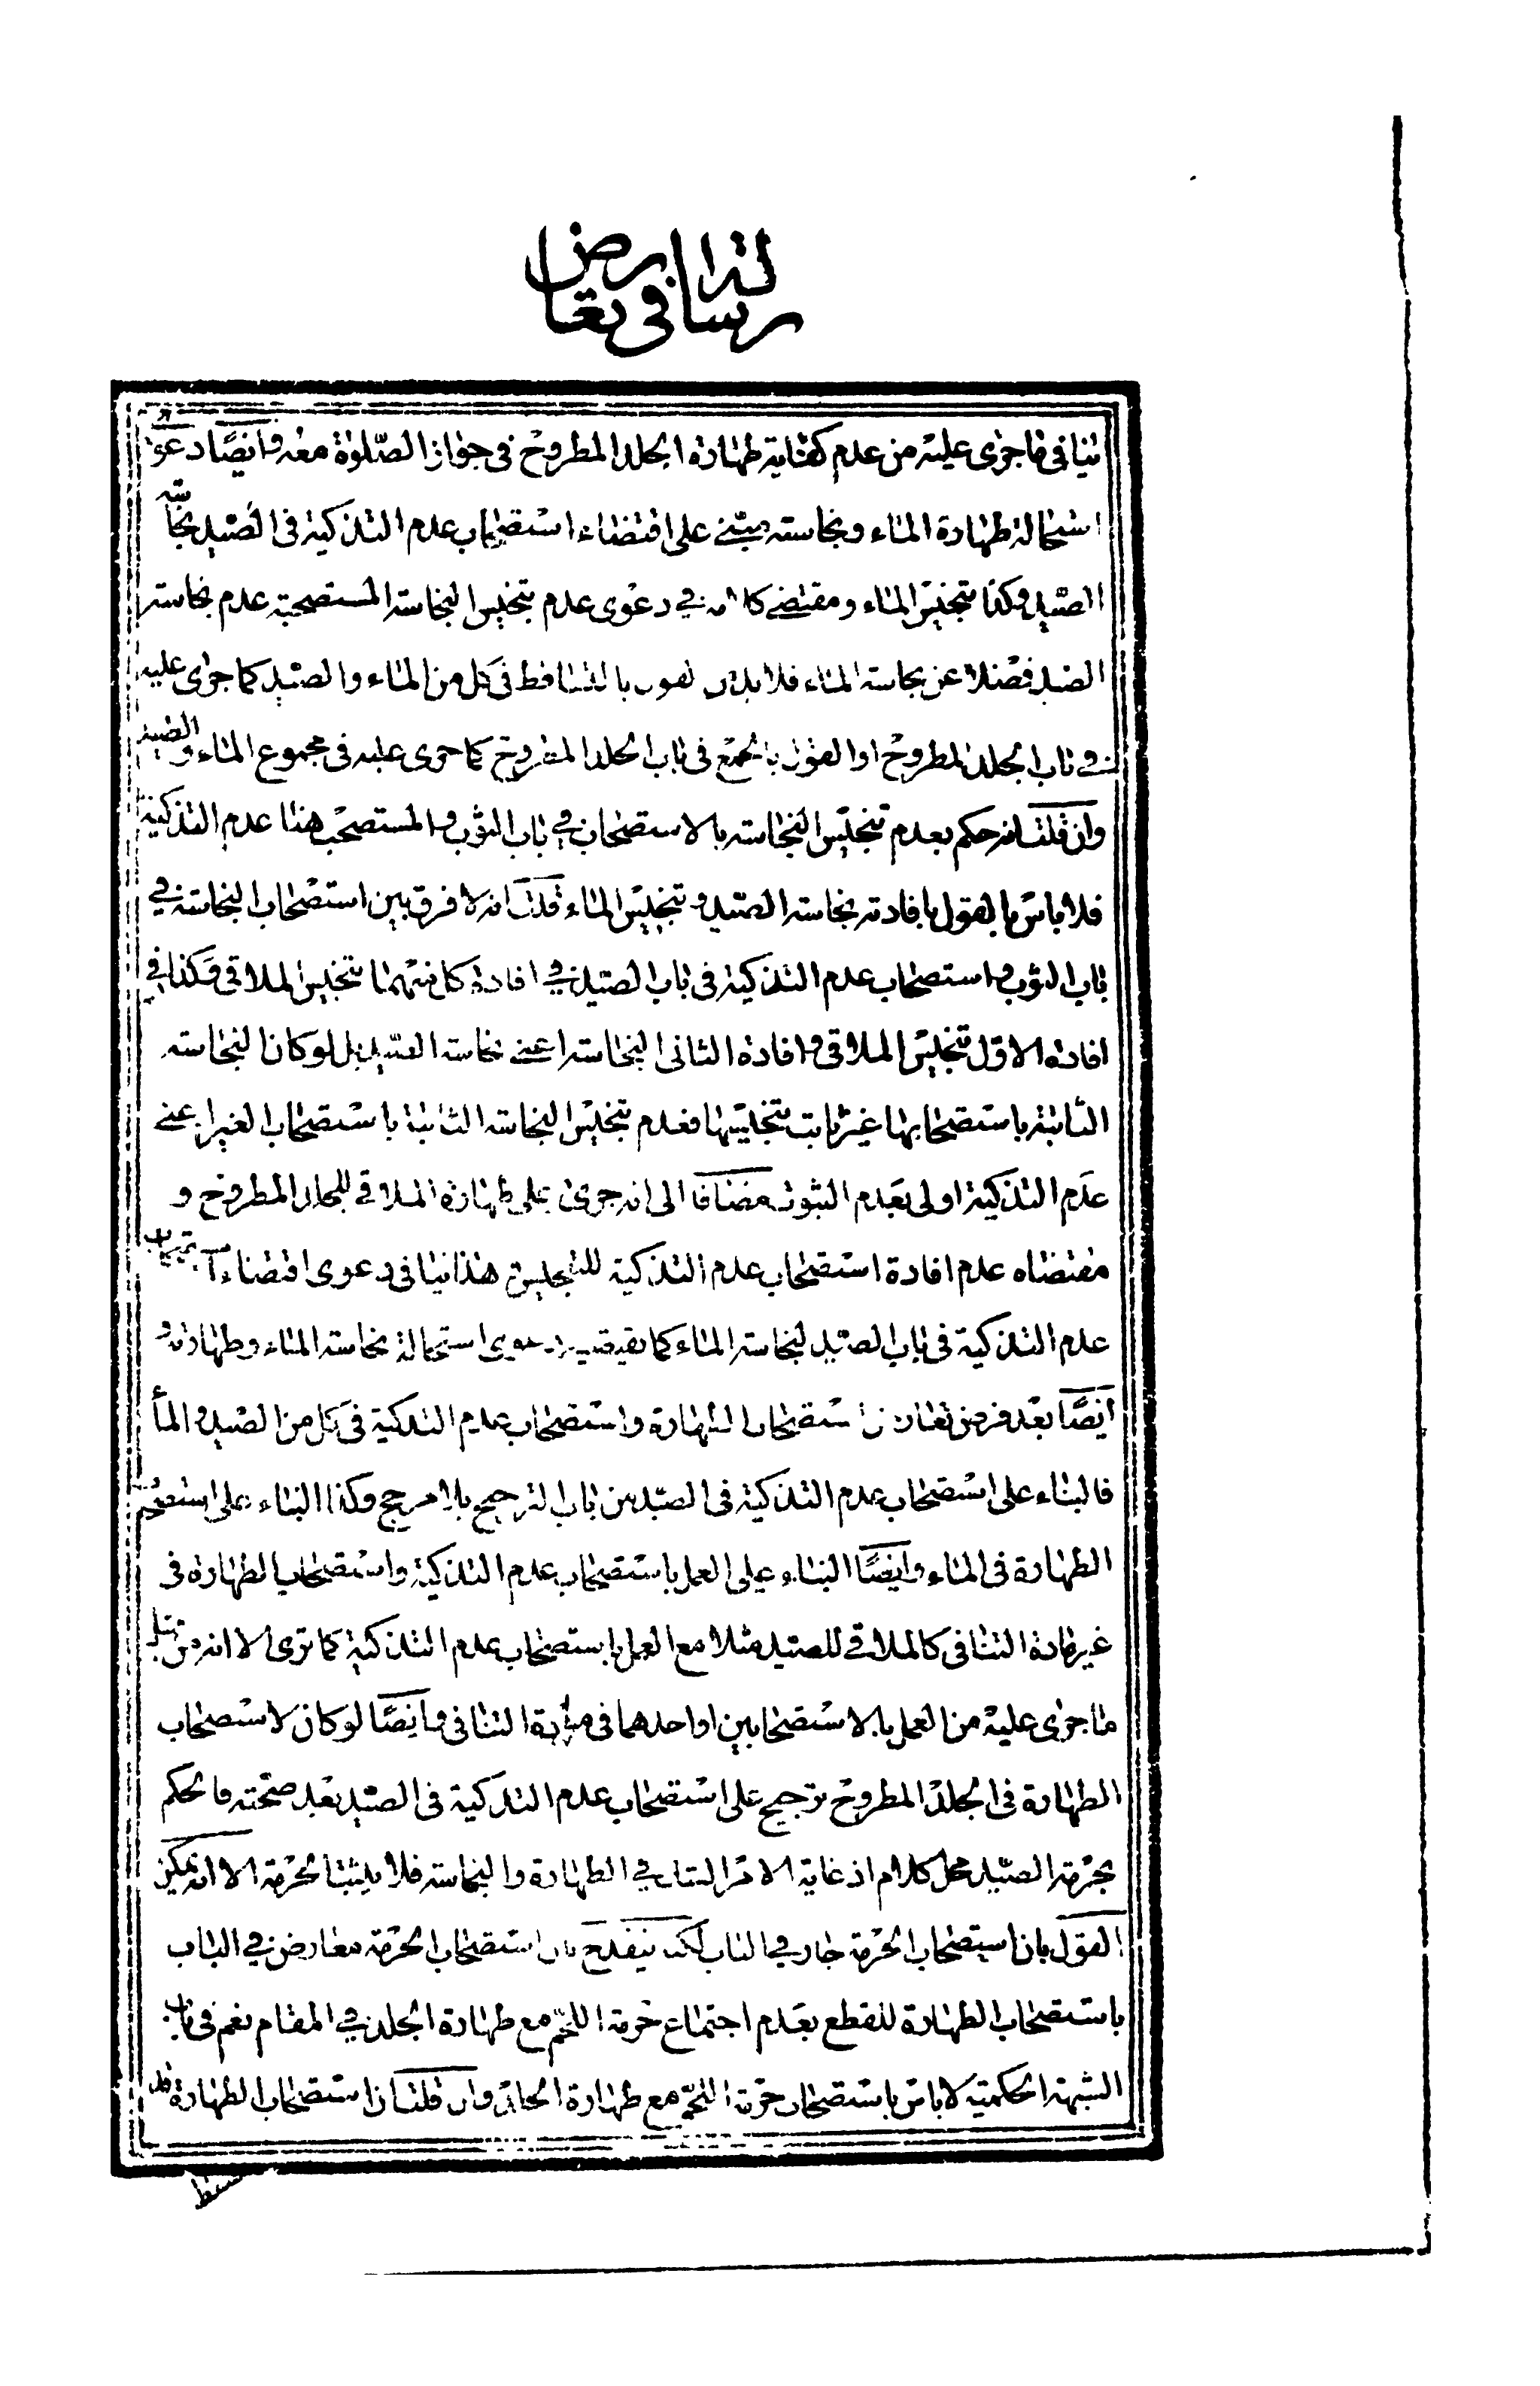 رسالة في تعارض
ينافي ما جرى عليه من عدم كفاية طهارة الجلد المطروح في جواز الصّلوة معه وأيضًا دعوى
استحالة طهارة الماء ونجاسته مبتنى على اقتضاء استصحاب عدم التذكية في الصّيد نجاسته
الصّيد وكذا تنجيس الماء ومقتضى كلامه في دعوى عدم تنجيس النجاسة المستصحبة عدم نجاسته
الصيد فضلا عن نجاسة الماء فلا بد بالتساقط في كل من الماء والصيد كما جرى عليه
في باب الجلد المطروح او القول بالجمع في باب الجلد المطروح كما جرى عليه في مجموع الماء والصيد
وان قلت انه حكم بعدم تنجيس النجاسة بالاستصحاب في باب الثوب والمستصحب هنا عدم التذكية
فلا باس بالقول بافادته نجاسة الصّيد وتنجيس الماء قلت انه لا فرق بين استصحاب النجاسة في
باب الثوب واستصحاب عدم التذكية في باب الصّيد في افادة كل منهما تنجيس الملاقي وكذا في
افادة الاول تنجيس الملاقي وافادة الثاني النجاسة اعني نجاسة الصّيد بل لو كان النجاسة
الثابتة باستصحابها غير ثابت تنجيسها فعدم تنجيس النجاسة الثابتة باستصحاب الغير اعني
عدم التذكية اولى بعدم الثبوت مضافا الى انه جرى على طهارة الملاقي للجلد المطروح و
مقتضاه عدم افادة استصحاب عدم التذكية للتنجيس هذا ينافي دعوى اقتضاء
عدم التذكية في باب الصّيد لنجاسة الماء كما دعوى استحالة نجاسة الماء وطهارته و
أيضًا بعد فرض تعارض استصحاب الطهارة واستصحاب عدم التذكية في كل من الصّيد والماء
فالبناء على استصحاب عدم التذكية في الصّيد من باب الترجيح بلا مرجح وكذا البناء على استصحاب
الطهارة في الماء وأيضًا البناء على العمل باستصحاب عدم التذكية واستصحاب الطهارة في
غير مادة التنافي كالملاقي للصيد مثلا مع العمل باستصحاب عدم التذكية كما ترى الا انه من
ما جرى عليه من العمل بالاستصحابين او احدهما في مادة التنافي وأيضًا لو كان لاستصحاب
الطهارة في الجلد المطروح ترجيح على استصحاب عدم التذكية في الصّيد بعد صحته فالحكم
بحرمة الصّيد محل كلام اذ غاية الامر التنافي في الطهارة والنجاسة فلا يثبت الحرمة الا انه يمكن
القول بان استصحاب الحرمة جار في الباب لكنه ينقدح بان استصحاب الحرمة معارض في الباب
باستصحاب الطهارة للقطع بعدم اجتماع حرمة اللحم مع طهارة الجلد في المقام نعم في باب
الشبهة الحكمية لا باس باستصحاب حرمة اللحم مع طهارة الجلد وان قلت ان استصحاب الطهارة